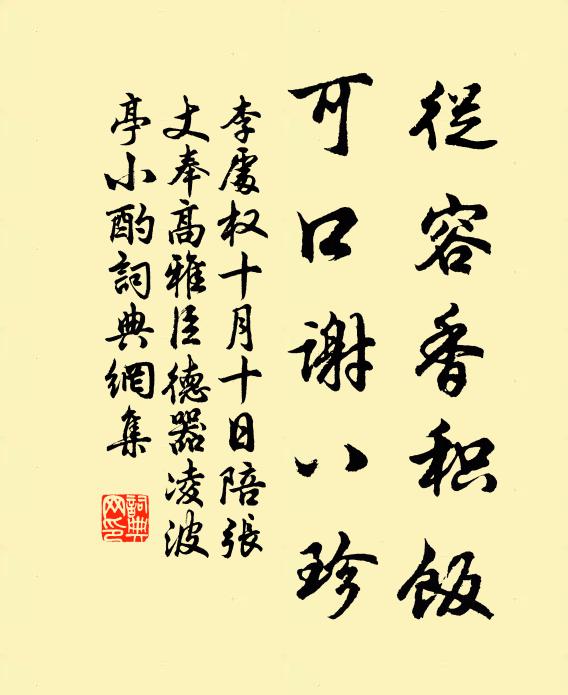 從容香积飯
可口謝八珍
李處权十月十日陪張
丈奉高雅臣德器凌波
亭小酌詞典網集
詞典
网印